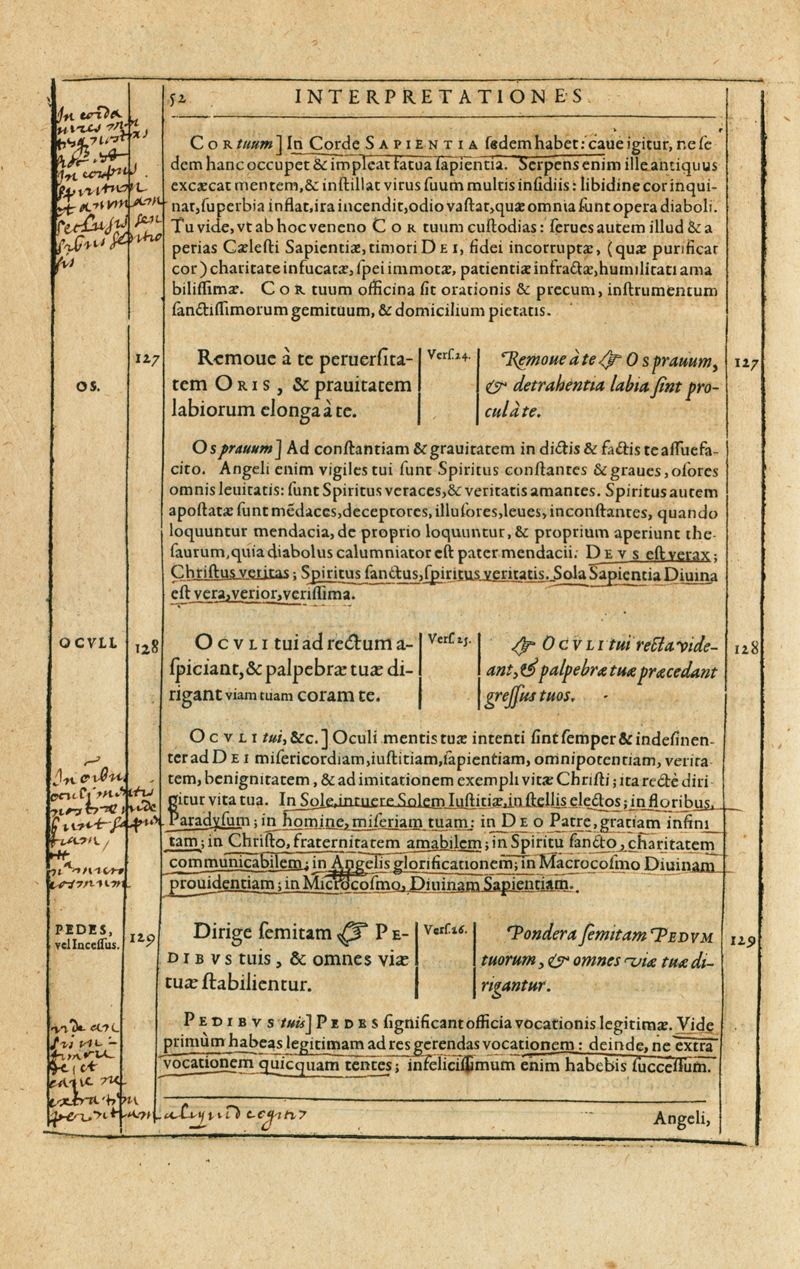 52 INTERPRETATIONES
COR tuum] In Corde SAPIENTIA ſedem habet: caue igitur, ne ſe
dem hanc occupet & impleat fatua ſapientia. Serpens enim ille antiquus
excæcat mentem, & inſtillat virus ſuum multis inſidiis: libidine cor inqui-
nat, ſuperbia inflat, ira incendit, odio vaſtat, quæ omnia ſunt opera diaboli.
Tu vide, vt ab hoc veneno COR tuum cuſtodias: ſerues autem illud & a
perias Cæleſti Sapientiæ, timori DEI, fidei incorruptæ, (quæ purificat
cor) charitate infucatæ, ſpei immotæ, patientiæ infractæ, humilitati ama
biliſſimæ. COR tuum officina ſit orationis & precum, inſtrumentum
ſanctiſſimorum gemituum, & domicilium pietatis.
OS.
127 Remoue à te peruerſita-
tem ORIS, & prauitatem
labiorum elonga à te.
Verſ. 24.
Remoue à te ☞ Os prauum, 127
& detrahentia labia ſint pro-
cul à te.
Os prauum] Ad conſtantiam & grauitatem in dictis & factis te aſſuefa-
cito. Angeli enim vigiles tui ſunt Spiritus conſtantes & graues, oſores
omnis leuitatis: ſunt Spiritus veraces, & veritatis amantes. Spiritus autem
apoſtatæ ſunt mēdaces, deceptores, illuſores, leues, inconſtantes, quando
loquuntur mendacia, de proprio loquuntur, & proprium aperiunt the-
ſaurum, quia diabolus calumniator eſt pater mendacii: DEVS eſt verax;
Chriſtus veritas; Spiritus ſanctus, ſpiritus veritatis. Sola Sapientia Diuina
eſt vera, verior, veriſſima.
OCVLI.
128 OCVLI tui ad rectum a-
ſpiciant, & palpebræ tuæ di-
rigant viam tuam coram te.
Verſ. 25.
☞ OCVLI tui recta vide- 128
ant, & palpebræ tuæ præcedant
greſſus tuos.
OCVLI tui, &c.] Oculi mentis tuæ intenti ſint ſemper & indeſinen-
ter ad DEI miſericordiam, iuſtitiam, ſapientiam, omnipotentiam, verita
tem, benignitatem, & ad imitationem exempli vitæ Chriſti; ita rectè diri
gitur vita tua. In Sole, intuere Solem Iuſtitiæ, in ſtellis electos; in floribus,
Paradyſum; in homine, miſeriam tuam: in DEO Patre, gratiam infini
tam; in Chriſto, fraternitatem amabilem; in Spiritu ſancto, charitatem
communicabilem; in Angelis glorificationem; in Macrocoſmo Diuinam
prouidentiam; in Microcoſmo, Diuinam Sapientiam.
PEDES,
vel Inceſſus.
129 Dirige ſemitam ☞ PE-
DIBVS tuis, & omnes viæ
tuæ ſtabilientur.
Verſ. 26.
Pondera ſemitam PEDVM 129
tuorum, & omnes viæ tuæ di-
rigantur.
PEDIBVS tuis] PEDES ſignificant officia vocationis legitimæ. Vide
primùm habeas legitimam ad res gerendas vocationem: deinde, ne extra
vocationem quicquam tentes; infeliciſſimum enim habebis ſucceſſum.
Angeli,